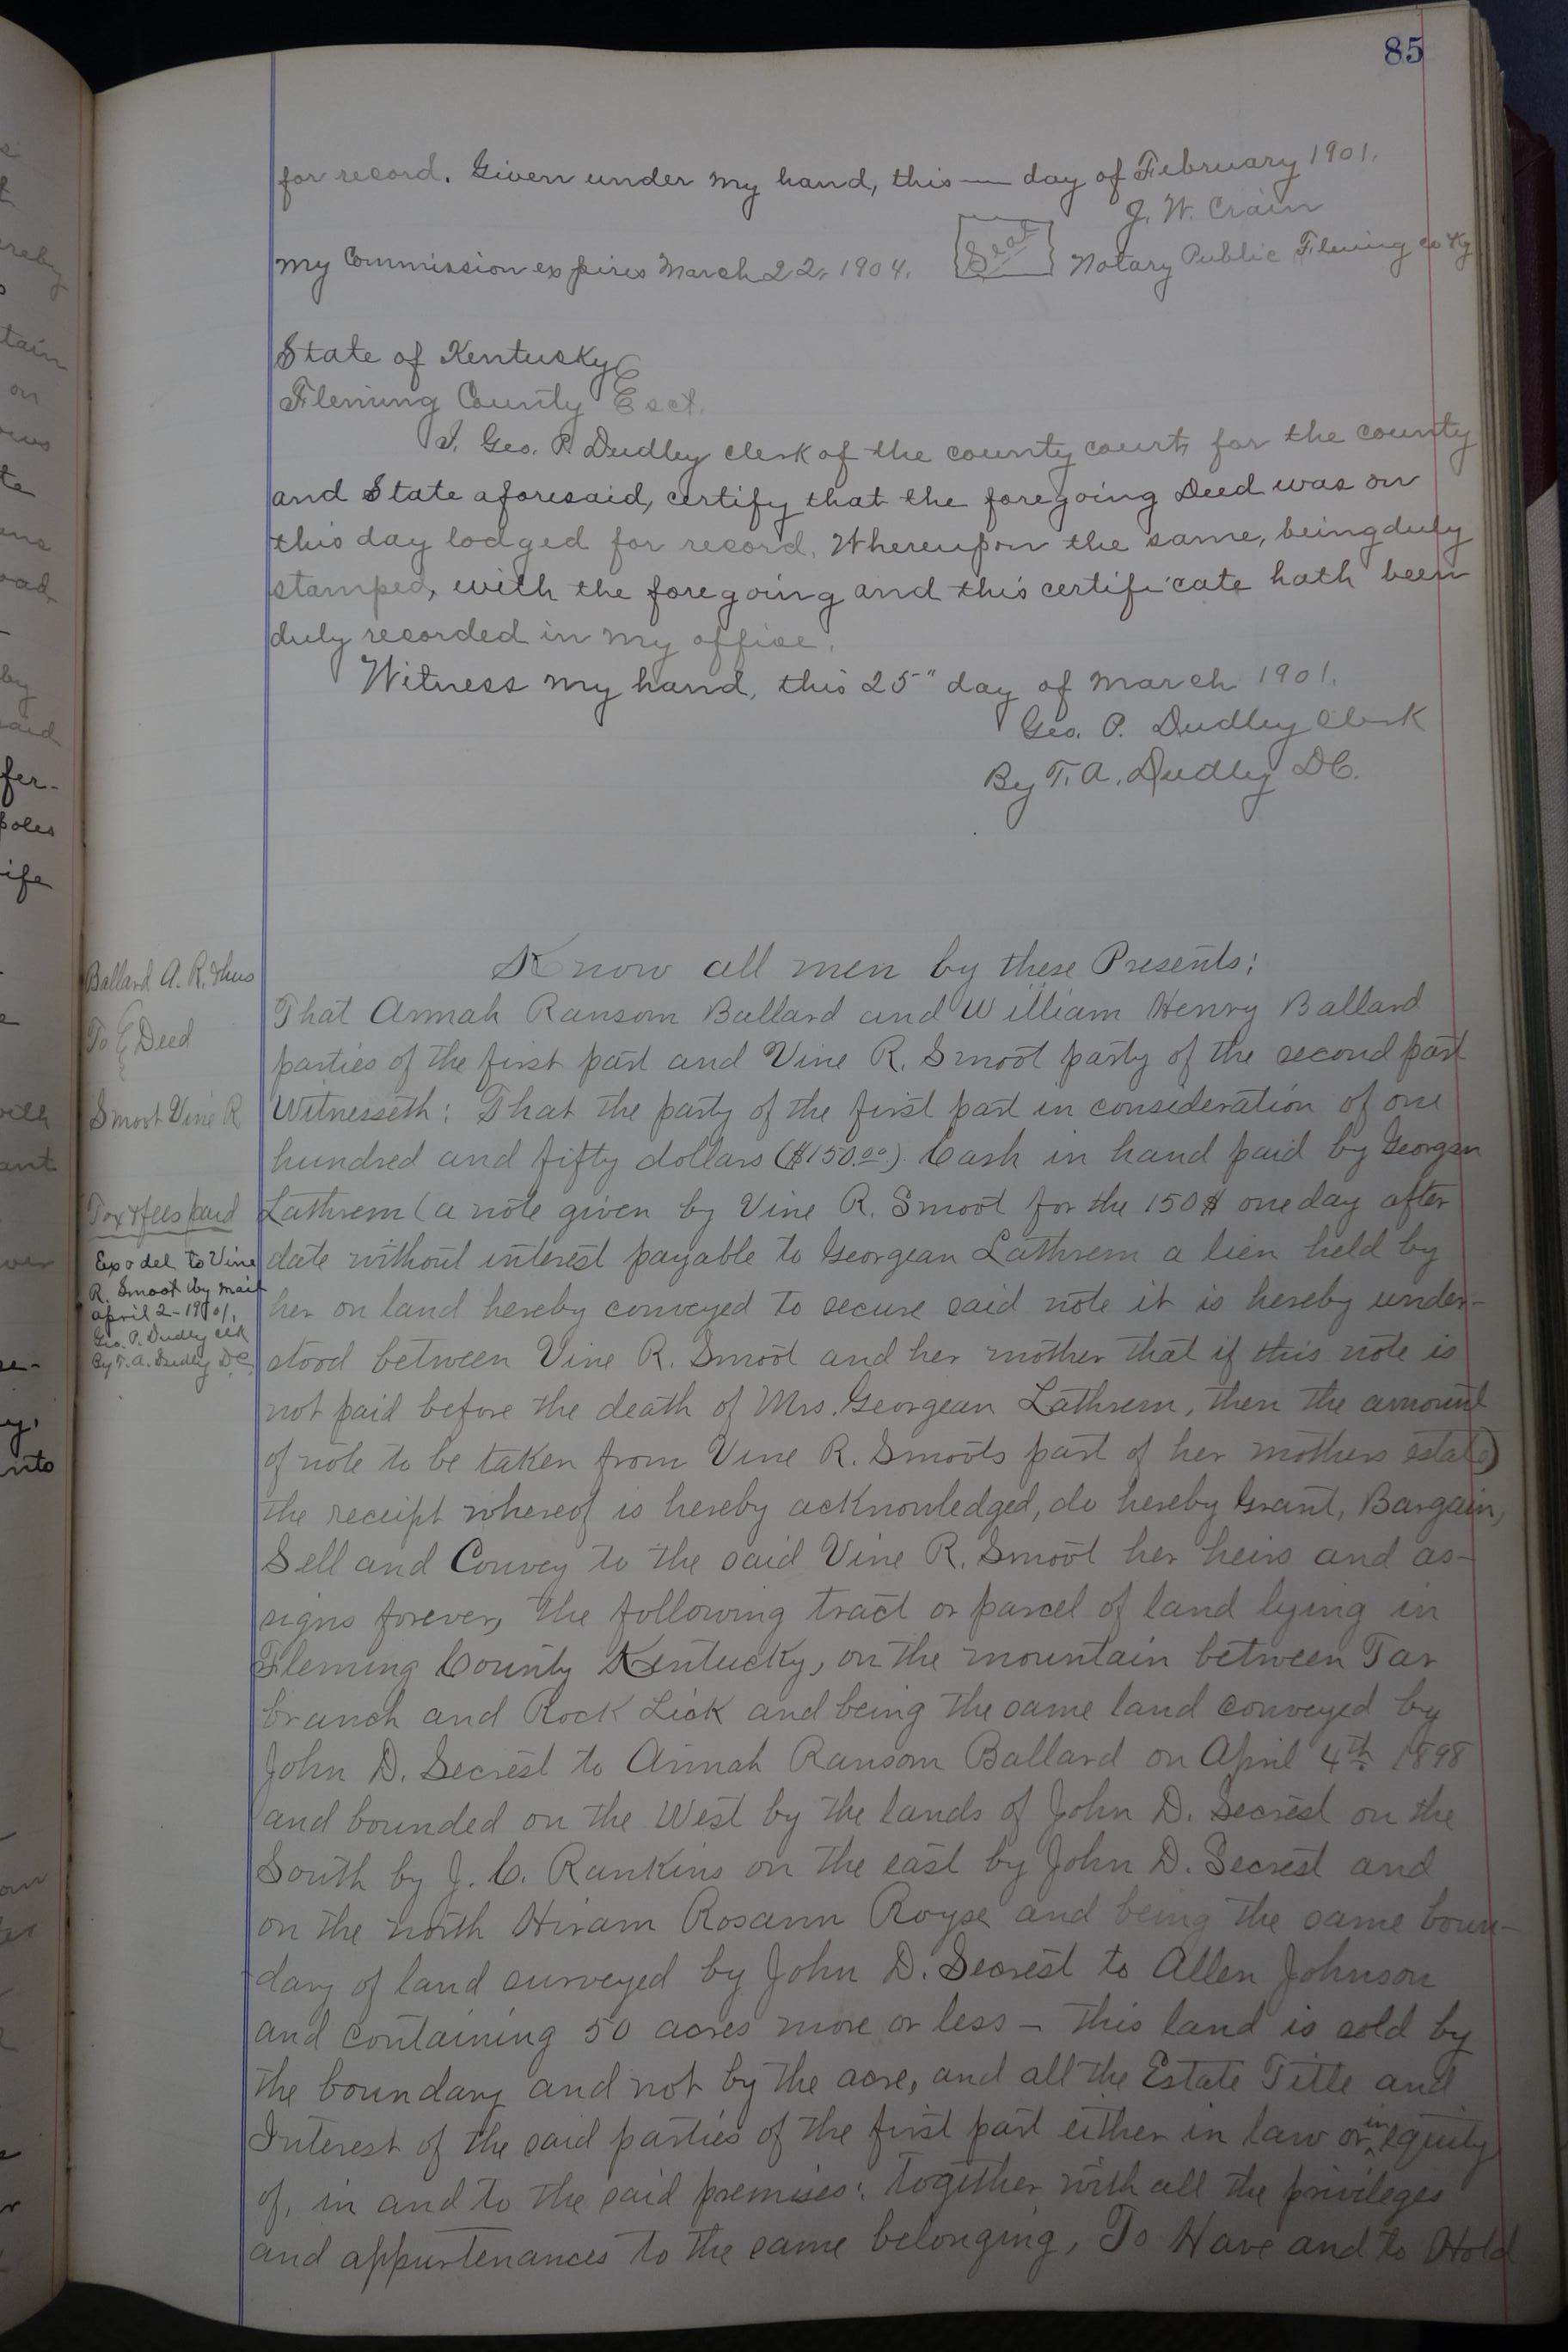 85
for record. Given under my hand, this — day of February 1901.
J. W. Crain
My Commission expires March 22, 1904. Seal Notary Public Fleming co Ky
State of Kentucky
Fleming County Sct.
I, Geo. P. Dudley clerk of the county court for the county
and State aforesaid, certify that the foregoing Deed was on
this day lodged for record. Whereupon the same, being duly
stamped, with the foregoing and this certificate hath been
duly recorded in my office.
Witness my hand, this 25" day of March 1901.
Geo. P. Dudley Clerk
By T. A. Dudley DC.
Ballard A. R. & hus
To Deed
Smoot Vine R
Tax & fees paid
Ex & del to Vine
R. Smoot by mail
April 2-1901.
Geo. P. Dudley clk
By T. A. Dudley DC
Know all men by these Presents:
That Annah Ransom Ballard and William Henry Ballard
parties of the first part and Vine R. Smoot party of the second part
Witnesseth: That the party of the first part in consideration of one
hundred and fifty dollars ($150.00) Cash in hand paid by Georgean
Lathrem (a note given by Vine R. Smoot for the 150$ one day after
date without interest payable to Georgean Lathrem a lien held by
her on land hereby conveyed to secure said note it is hereby under-
stood between Vine R. Smoot and her mother that if this note is
not paid before the death of Mrs. Georgean Lathrem, then the amount
of note to be taken from Vine R. Smoots part of her mothers estate)
the receipt whereof is hereby acknowledged, do hereby Grant, Bargain,
Sell and Convey to the said Vine R. Smoot her heirs and as-
signs forever, the following tract or parcel of land lying in
Fleming County Kentucky, on the mountain between Tar
branch and Rock Lick and being the same land conveyed by
John D. Secrest to Annah Ransom Ballard on April 4th 1898
and bounded on the West by the lands of John D. Secrest on the
South by J. C. Rankins on the east by John D. Secrest and
on the north Hiram Rosann Royse and being the same boun-
dary of land surveyed by John D. Secrest to Allen Johnson
and containing 50 acres more or less - this land is sold by
the boundary and not by the acre, and all the Estate Title and
Interest of the said parties of the first part either in law or in equity
of, in and to the said premises: together with all the privileges
and appurtenances to the same belonging, To Have and to Hold